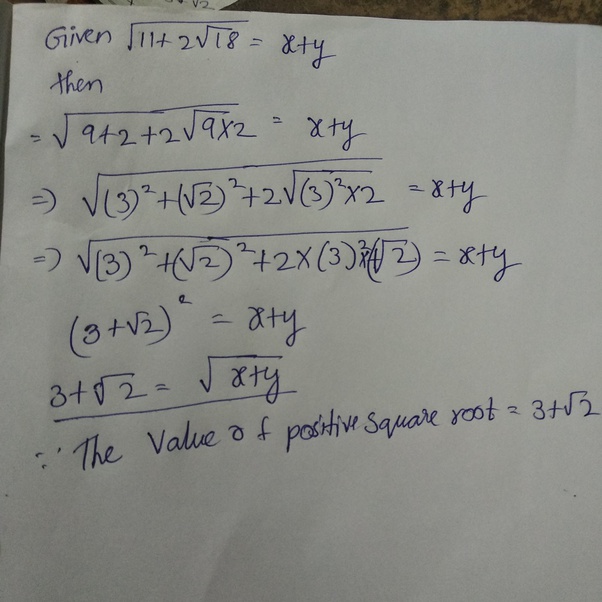 Given √(11+2√18) = x+y
then
= √(9+2+2√(9×2)) = x+y
=> √((3)²+(√2)²+2√((3)²×2)) = x+y
=> √((3)²+(√2)²+2×(3)²×(√2)) = x+y
(3+√2)² = x+y
3+√2 = √(x+y)
∵ The Value of positive square root = 3+√2